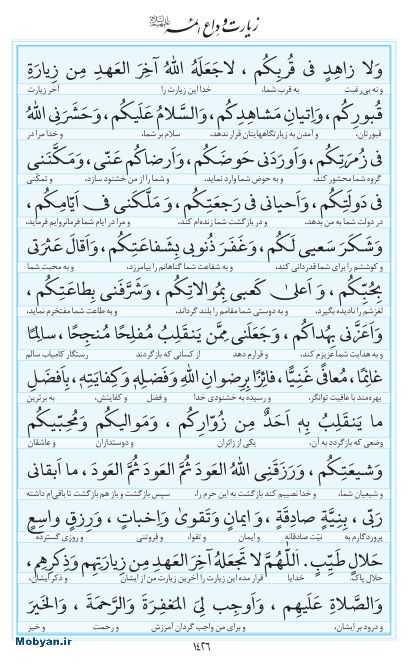 زیارت وداع ائمه علیهم السلام
وَلا زاهِدٍ فی قُربِکُم ، لاجَعَلَهُ اللهُ آخِرَ العَهدِ مِن زِیارَةِ
و نه بی‌رغبت به قرب شما، خدا این زیارت را آخر زیارت
قُبورِکُم ، وَاِتیانِ مَشاهِدِکُم ، وَالسَّلامُ عَلَیکُم ، وَحَشَرَنِی اللهُ
قبورتان، و آمدن به زیارتگاههایتان قرار ندهد، سلام بر شما، و خدا مرا در
فی زُمرَتِکُم ، وَاَورَدَنی حَوضَکُم ، وَاَرضاکُم عَنّی ، وَمَکَّنَنی
گروه شما محشور کند، و به حوض شما وارد نماید، و شما را از من خشنود سازد، و تمکّنی
فی دَولَتِکُم ، وَاَحیانی فی رَجعَتِکُم ، وَ مَلَّکَنی فی اَیّامِکُم ،
در دولت شما به من بدهد، و در بازگشت شما زنده‌ام کند، و مرا در ایام شما فرمانروایم فرماید،
وَشَکَرَ سَعیی لَکُم ، وَغَفَرَ ذُنوبی بِشَفاعَتِکُم ، وَاَقالَ عَثرَتی
و کوششم را برای شما قدردانی کند، و به شفاعت شما گناهانم را بیامرزد، و به محبت شما
بِحُبِّکُم ، وَ اَعلیٰ کَعبی بِمُوالاتِکُم ، وَشَرَّفَنی بِطاعَتِکُم ،
لغزشم را نادیده بگیرد، و به دوستی شما مقامم را بلند گرداند، و به طاعت شما مفتخرم نماید،
وَاَعَزَّنی بِهُداکُم ، وَجَعَلَنی مِمَّن یَنقَلِبُ مُفلِحًا مُنجِحًا ، سالِمًا
و به هدایت شما عزیزم کند، و قرارم دهد از کسانی که باز گردند رستگار کامیاب سالم
غانِمًا ، مُعافًی غَنِیًّا ، فائِزًا بِرِضوانِ اللهِ وَفَضلِهٖ وَ کِفایَتِهٖ ، بِاَفضَلِ
بهره‌مند با عافیت توانگر، و رسیده به خشنودی خدا و فضل و کفایتش، به برترین
ما یَنقَلِبُ بِهٖ اَحَدٌ مِن زُوّارِکُم ، وَمَوالیکُم وَمُحِبّیکُم
وضعی که بازگردد به آن، یکی از زائران و دوستداران و عاشقان
وَشیعَتِکُم ، وَرَزَقَنِی اللهُ العَودَ ثُمَّ العَودَ ثُمَّ العَودَ ، ما اَبقانی
و شیعیان شما، و خدا نصیبم کند بازگشت به این حرم را، سپس بازگشت و باز هم بازگشت تا باقی‌ام داشته
رَبّی ، بِنِیَّةٍ صادِقَةٍ ، وَ ایمانٍ وَتَقویٰ وَاِخباتٍ ، وَرِزقٍ واسِعٍ
پروردگارم به نیّت صادقانه و ایمان و تقوا، و فروتنی و روزی گسترده
حَلالٍ طَیِّبٍ . اَللّٰهُمَّ لا تَجعَلهُ آخِرَ العَهدِ مِن زِیارَتِهِم وَذِکرِهِم ،
حلال پاک. خدایا قرار مده این زیارت را آخرین زیارت من از ایشان و ذکر ایشان،
وَالصَّلاةِ عَلَیهِم ، وَاَوجِب لِیَ المَغفِرَةَ وَالرَّحمَةَ ، وَالخَیرَ
و درود بر ایشان. و برای من واجب گردان آمرزش و رحمت و خیر
۱۴۲۶
Mobyan.ir